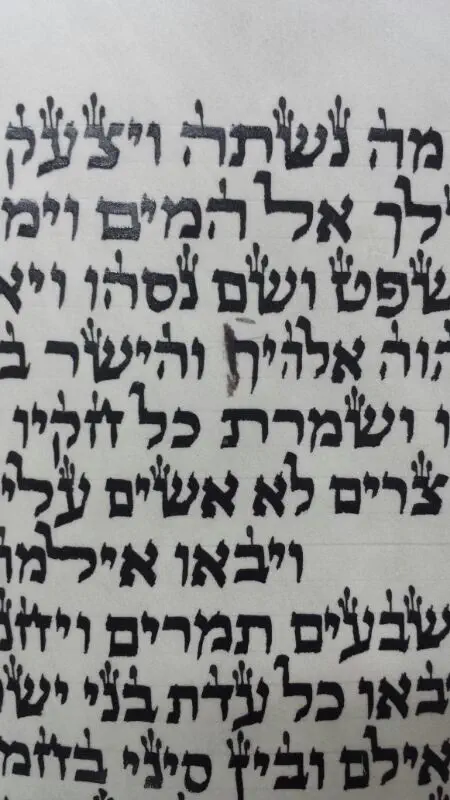 מה נשתה ויצעק
לך אל המים וימ
שפט ושם נסהו ויא
הוה אלהיך והישר ב
ו ושמרת כל חקיו
צרים לא אשים עלי
ויבאו אילמה
שבעים תמרים ויחנ
באו כל עדת בני יש
אילם ובין סיני בחמ